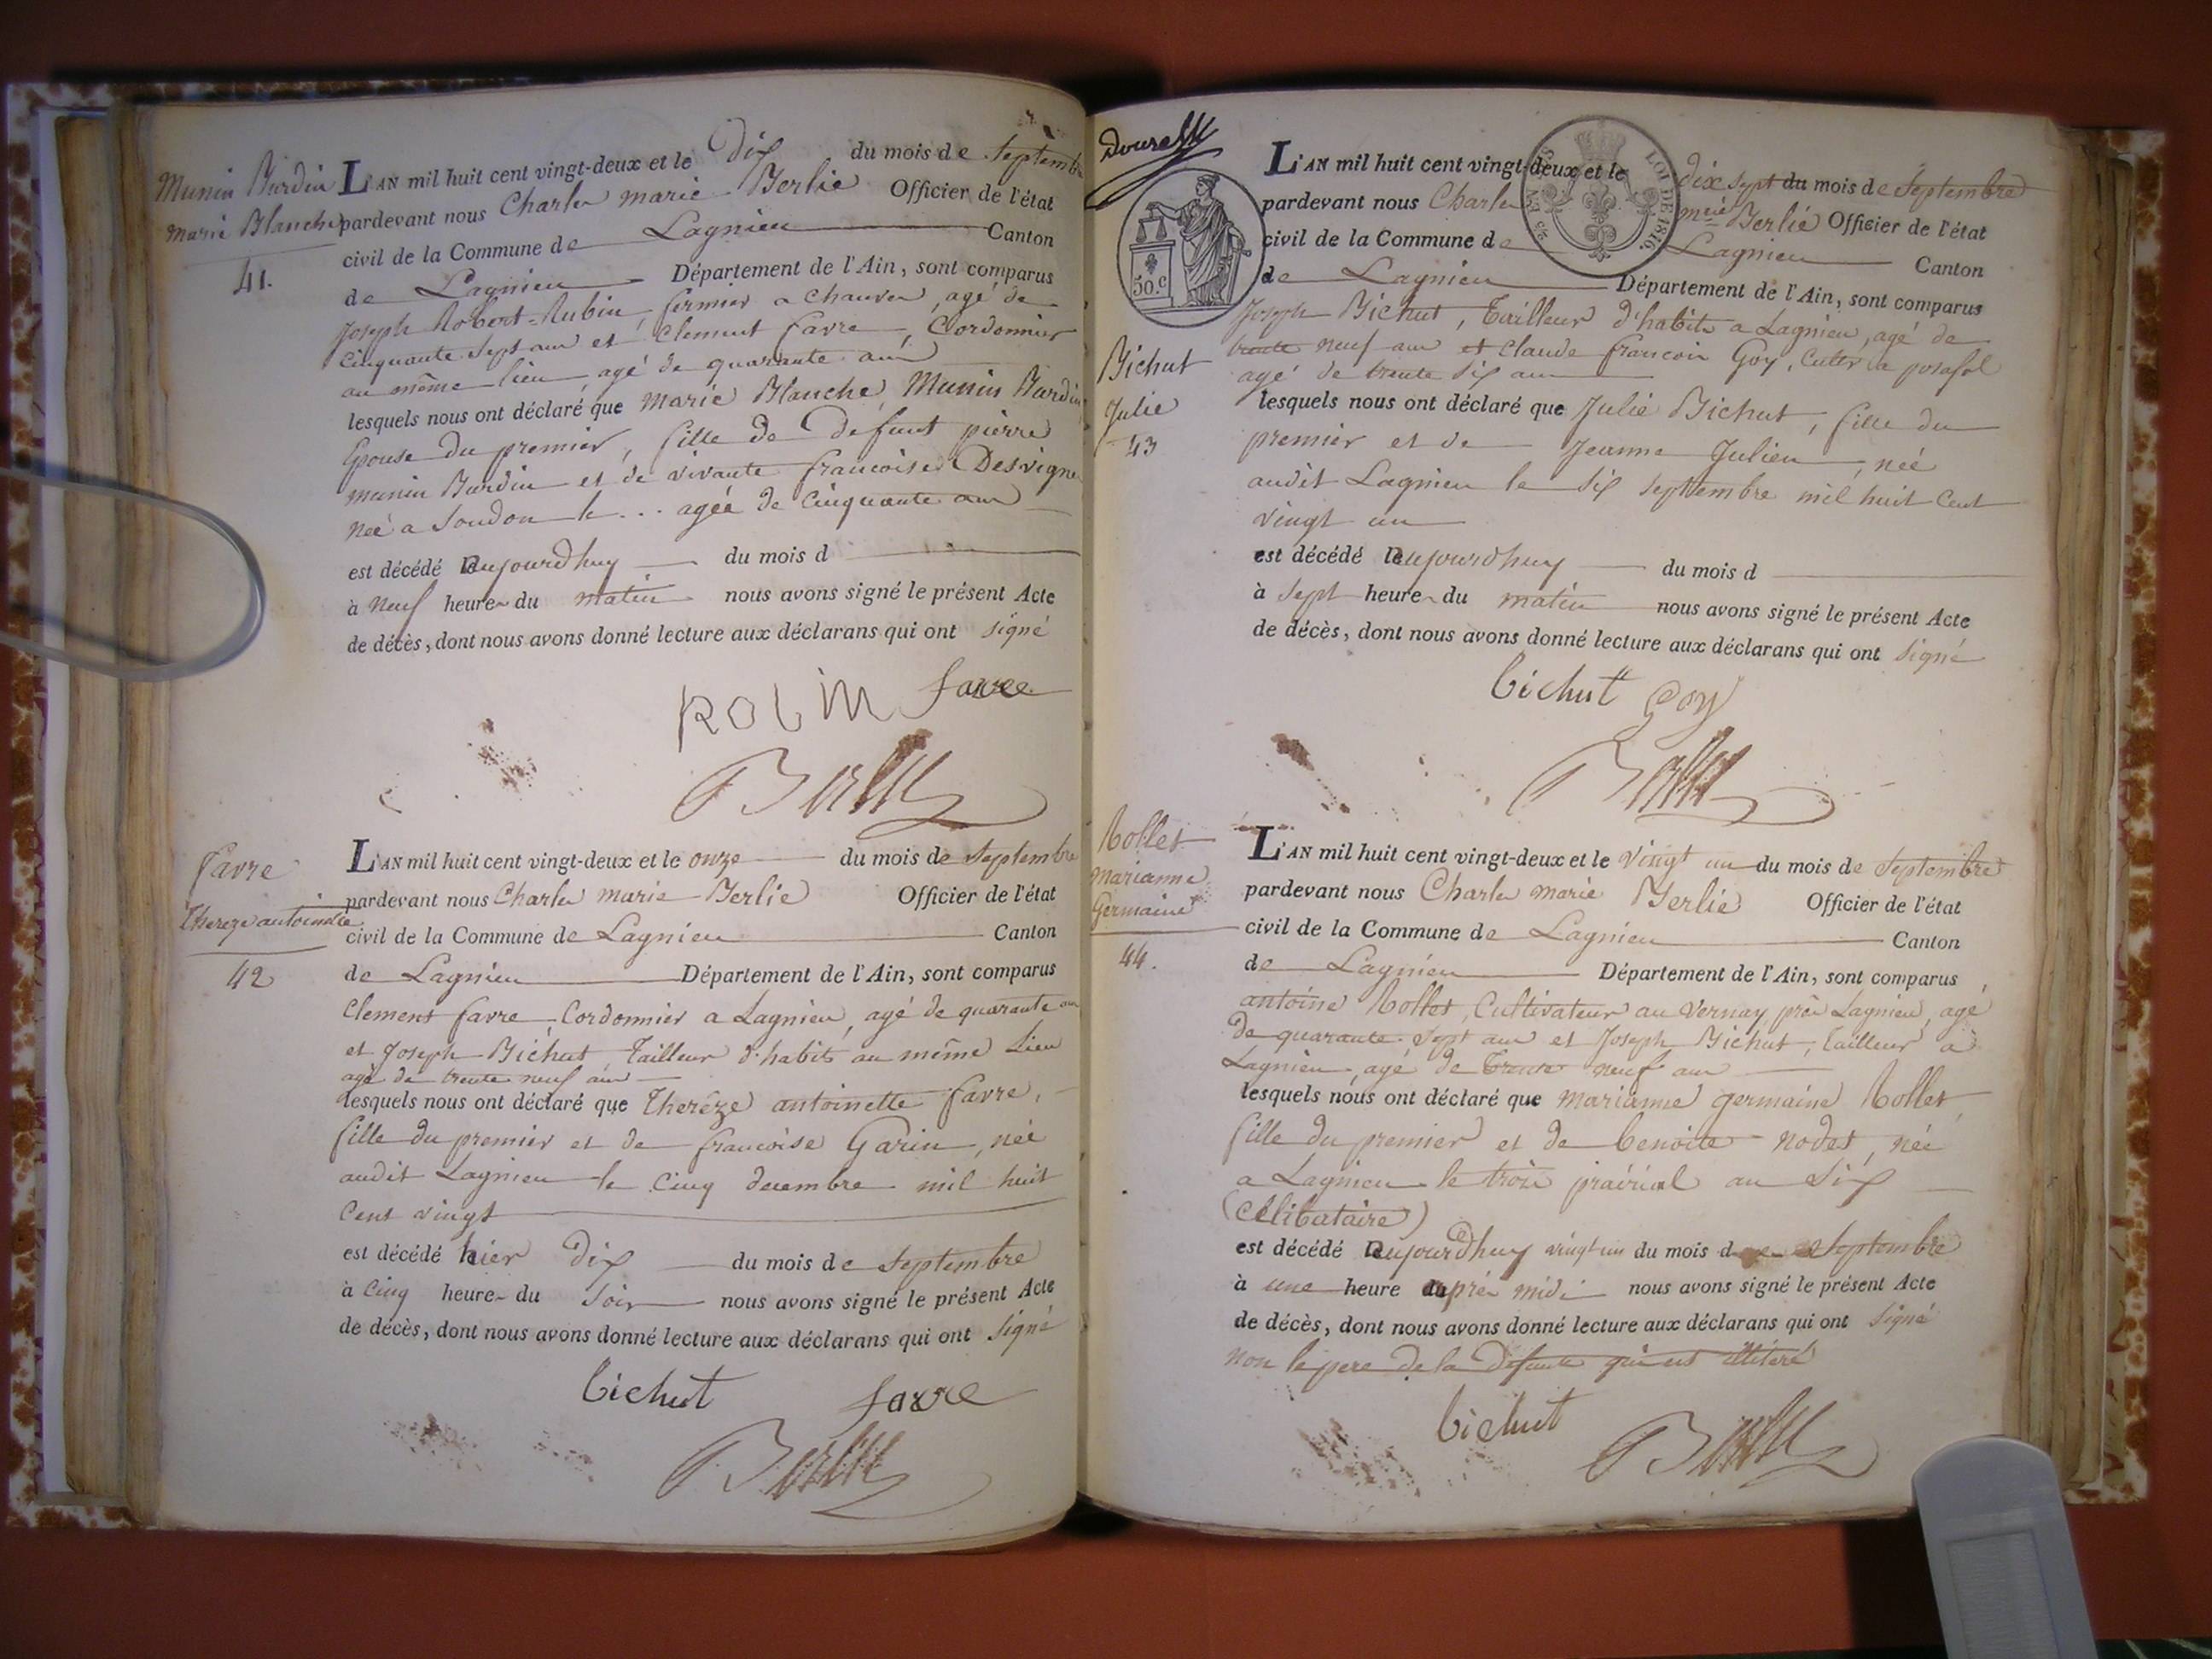 Munin Burdin
marie Blanche
41.
L'AN mil huit cent vingt-deux et le Dix du mois de Septembre
pardevant nous Charles marie Berlie Officier de l'état
civil de la Commune de Lagnieu Canton
de Lagnieu Département de l'Ain, sont comparus
Joseph Robert-Rubin, fermier a Chauvea, agé de
Cinquante Sept ans et Clement favre, Cordonnier
au même lieu agé de quarante ans
lesquels nous ont déclaré que marie Blanche Munin Burdin
Epouse du premier, fille de defunt pierre
munin Burdin et de vivante francoise Desvigne
neé a Soudon le ... agée de Cinquante ans
est décédé aujourdhuy du mois d
à neuf heures du matin nous avons signé le présent Acte
de décès, dont nous avons donné lecture aux déclarans qui ont signé
ROBIN favre
Berlie
favre
Thereze antoinette
42
L'AN mil huit cent vingt-deux et le onze du mois de Septembre
pardevant nous Charles marie Berlie Officier de l'état
civil de la Commune de Lagnieu Canton
de Lagnieu Département de l'Ain, sont comparus
Clement favre, Cordonnier a Lagnieu, agé de quarante ans
et Joseph Bichut, Tailleur d'habits au même Lieu
agé de trente neuf ans
lesquels nous ont déclaré que Therèze antoinette favre,
fille du premier et de francoise Garin, née
audit Lagnieu le Cinq decembre mil huit
Cent vingt
est décédé hier Dix du mois de Septembre
à Cinq heures du Soir nous avons signé le présent Acte
de décès, dont nous avons donné lecture aux déclarans qui ont signé
bichut favre
Berlie
50.c
LOI DE 1816.
Bichut
Julie
43
L'AN mil huit cent vingt-deux et le dix sept du mois de Septembre
pardevant nous Charles mrie Berlié Officier de l'état
civil de la Commune de Lagnieu Canton
de Lagnieu Département de l'Ain, sont comparus
Joseph Bichut, Tailleur d'habits a Lagnieu, agé de
trente neuf ans et Claude francois Goy, Cultr a posafol
agé de trente six ans
lesquels nous ont déclaré que Julie Bichut, fille du
premier et de Jeanne Julien, neé
audit Lagnieu le six septembre mil huit Cent
vingt un
est décédé aujourdhuy du mois d
à Sept heures du matin nous avons signé le présent Acte
de décès, dont nous avons donné lecture aux déclarans qui ont signé
bichut goy
Berlie
Rollet
marianne
Germaine
44.
L'AN mil huit cent vingt-deux et le vingt un du mois de Septembre
pardevant nous Charles marie Berlie Officier de l'état
civil de la Commune de Lagnieu Canton
de Lagnieu Département de l'Ain, sont comparus
antoine Rollet, Cultivateur au vernay près Lagnieu, agé
de quarante Sept ans et Joseph Bichut, Tailleur à
Lagnieu, agé de trente neuf ans
lesquels nous ont déclaré que marianne germaine Rollet
fille du premier et de benoite nodet, née
a Lagnieu le trois prairial an Six
(Célibataire)
est décédé aujourdhuy vingt un du mois de Septembre
à une heure après midi nous avons signé le présent Acte
de décès, dont nous avons donné lecture aux déclarans qui ont signé
non le pere de la defunte qui est illiteré
bichut
Berlie